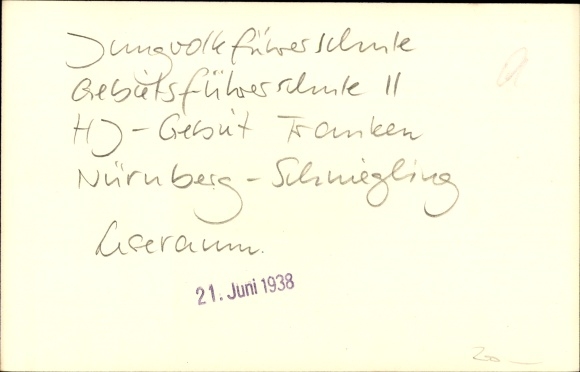 Jungvolkführerschule
Gebietsführerschule II
HJ-Gebiet Franken
Nürnberg-Schniegling
Leseraum.
21. Juni 1938